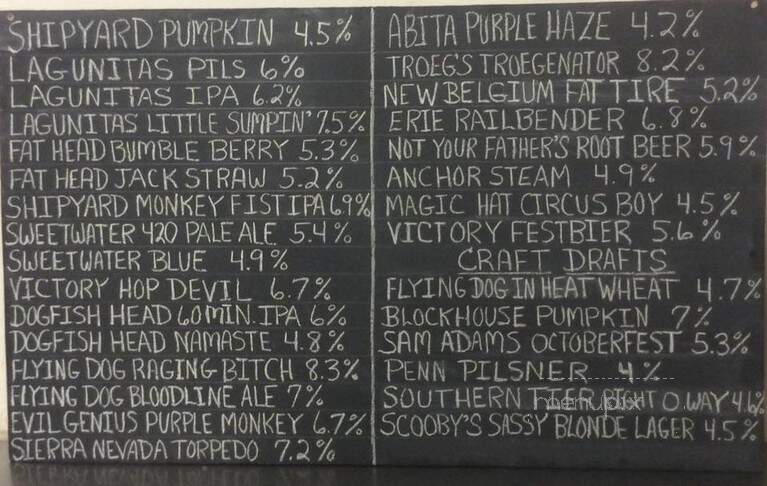 SHIPYARD PUMPKIN 4.5%
LAGUNITAS PILS 6%
LAGUNITAS IPA 6.2%
LAGUNITAS LITTLE SUMPIN' 7.5%
FAT HEAD BUMBLE BERRY 5.3%
FAT HEAD JACK STRAW 5.2%
SHIPYARD MONKEY FIST IPA 6.9%
SWEETWATER 420 PALE ALE 5.4%
SWEETWATER BLUE 4.9%
VICTORY HOP DEVIL 6.7%
DOGFISH HEAD 60 MIN. IPA 6%
DOGFISH HEAD NAMASTE 4.8%
FLYING DOG RAGING BITCH 8.3%
FLYING DOG BLOODLINE ALE 7%
EVIL GENIUS PURPLE MONKEY 6.7%
SIERRA NEVADA TORPEDO 7.2%
ABITA PURPLE HAZE 4.2%
TROEG'S TROEGENATOR 8.2%
NEW BELGIUM FAT TIRE 5.2%
ERIE RAILBENDER 6.8%
NOT YOUR FATHER'S ROOT BEER 5.9%
ANCHOR STEAM 4.9%
MAGIC HAT CIRCUS BOY 4.5%
VICTORY FESTBIER 5.6%
CRAFT DRAFTS
FLYING DOG IN HEAT WHEAT 4.7%
BLOCKHOUSE PUMPKIN 7%
SAM ADAMS OCTOBERFEST 5.3%
PENN PILSNER 4%
SOUTHERN O.WAY 4.6%
SCOOBY'S SASSY BLONDE LAGER 4.5%
menupix